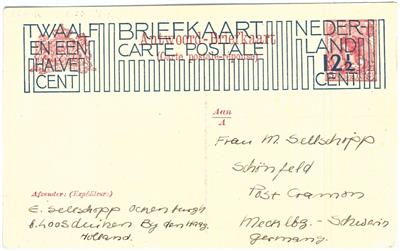 TWAALF
EN EEN
HALVE
CENT
BRIEFKAART
CARTE POSTALE
NEDER-
LAND
12½
CENT
Antwoord-Briefkaart
(Carte postale-réponse)
Aan
A
Frau M. Sellschopp
Schönfeld
Post Cramon
Mecklbg. - Schwerin
Germany.
Afzender: (Expéditeur:)
E. Sellschopp Ockenburgh
Loosduinen By den Haag
Holland.